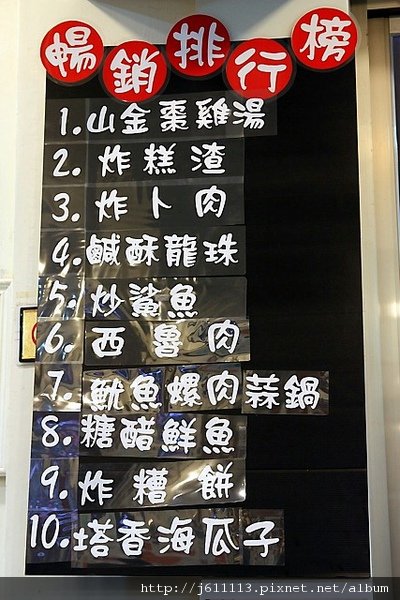 暢銷排行榜
1.山金棗雞湯
2.炸糕渣
3.炸卜肉
4.鹹酥龍珠
5.炒鯊魚
6.西魯肉
7.魷魚螺肉蒜鍋
8.糖醋鮮魚
9.炸糟餅
10.塔香海瓜子
http://j611113.pixnet.net/album